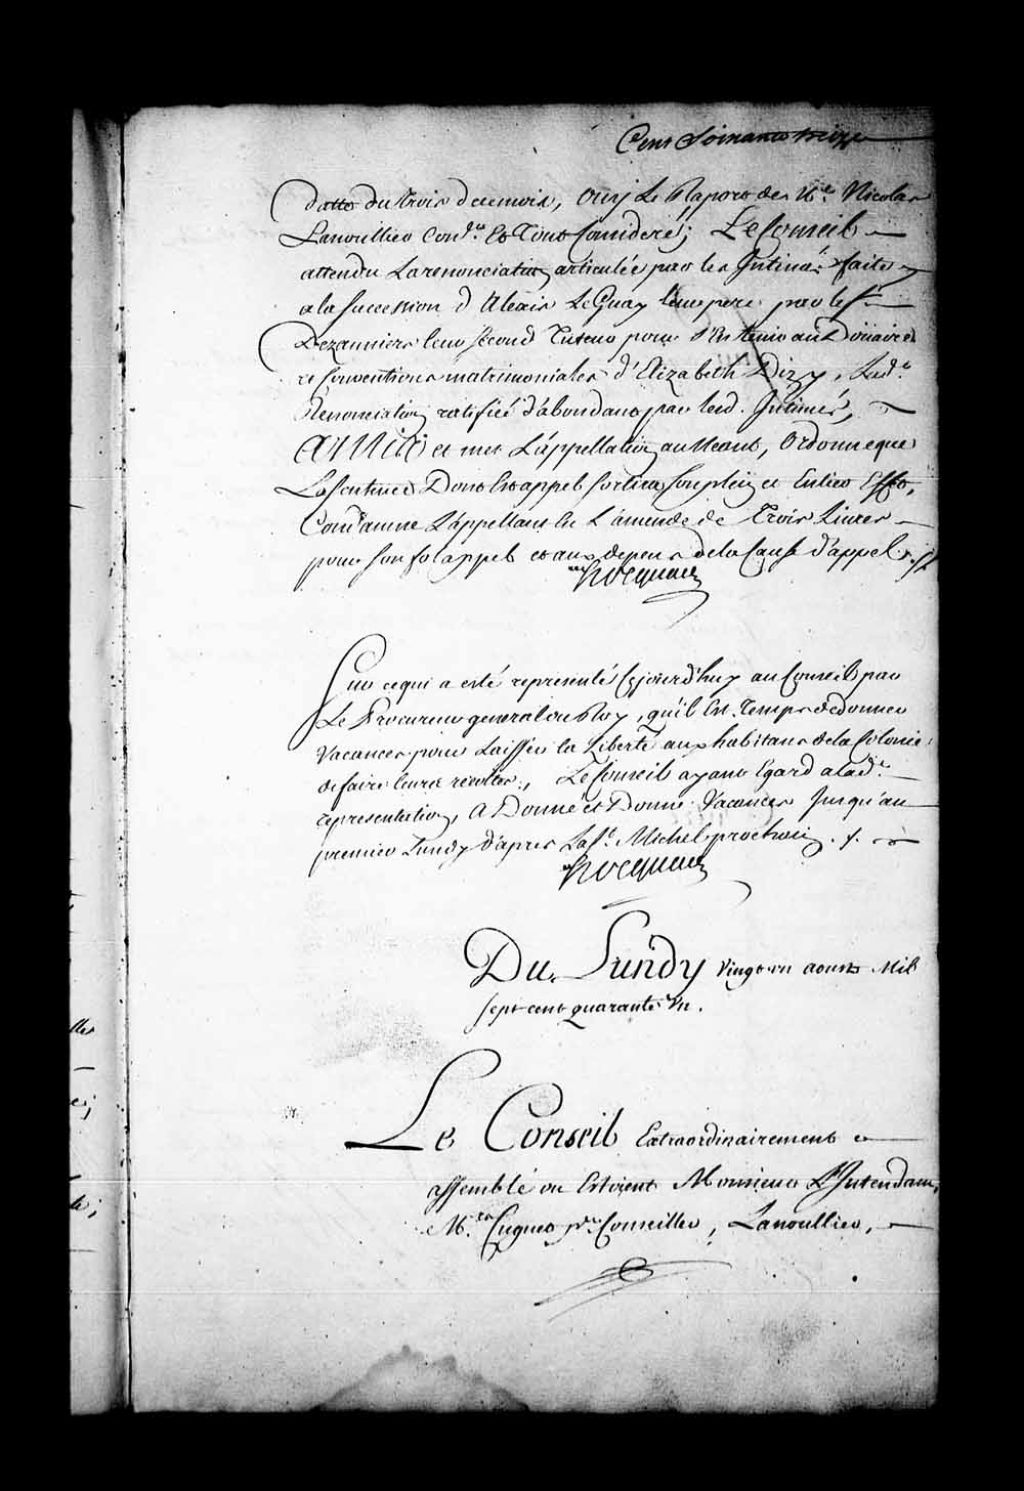 Cent Soixante treize
datté du trois de ce mois, Ouy Le Raport de Me. Nicolas
Lanoullier Coner. Et Tout Consideré; Le Conseil
attendu La renonciation articulée par les Intimés faite
a la Succession d'Alexis LeGuay leur pere par le Sr.
Dezauniers leur second Tuteur pour s'En tenir au Doüaire
et Conventions matrimoniales d'Elizabeth Dizy, Lade.
Renonciation ratifiée d'abondant par lesd. Intimés,
A Mis et met L'appellation au Neant, Ordonne que
La Sentence Dont Est appel sortira son plein et Entier Effet,
Condamne L'appellant En L'amende de Trois Livres
pour son fol appel et aux depens de la Cause d'appel ./.
Hocquart
Sur ce qui a esté representé Cejourd'huy au Conseil par
Le Procureur general du Roy, qu'il Est Temps de donner
Vacances pour Laisser la Liberté aux habitans de la Colonie
de faire leurs récoltes, Le Conseil ayant Egard a lade.
representation, A Donné et Donne Vacances Jusqu'au
premier Lundy d'apres La St. Michel prochain ./.
Hocquart
Du Lundy Vingt un aoust Mil
sept cent quarante Un.
Le Conseil Extraordinairement
assemblé ou Estoient Monsieur L'Intendant,
Mrs. Cugnet per. Conseiller, Lanoullier,